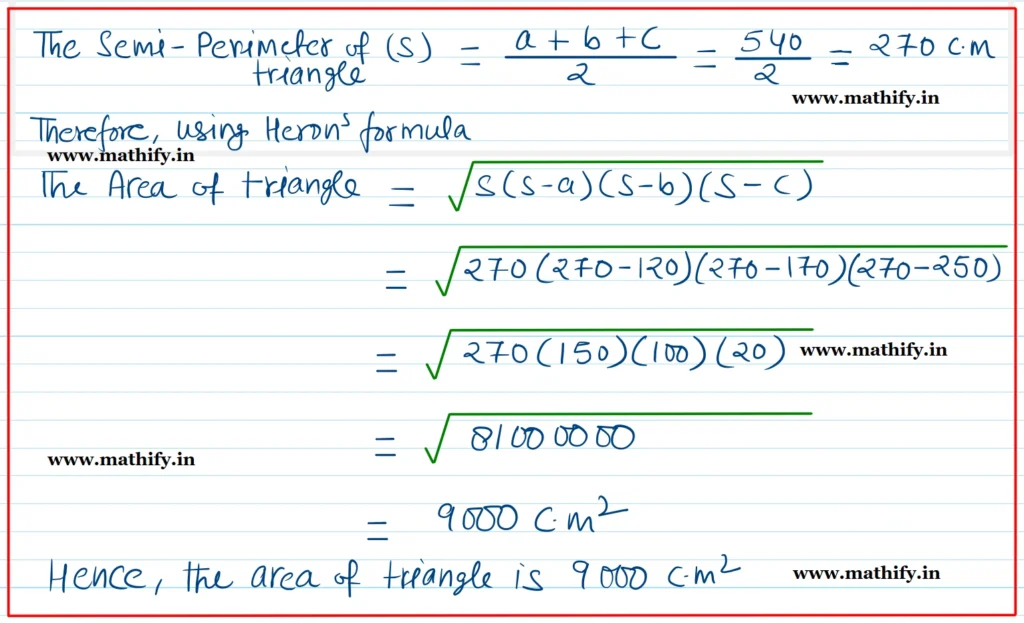 The Semi-Perimeter of (S) = a + b + c / 2 = 540 / 2 = 270 c.m
triangle
www.mathify.in
Therefore, using Heron's formula
www.mathify.in
The Area of triangle = √S(S-a)(S-b)(S-c)
= √270(270-120)(270-170)(270-250)
= √270(150)(100)(20) www.mathify.in
= √81000000
www.mathify.in
= 9000 c.m²
Hence, the area of triangle is 9000 c.m² www.mathify.in